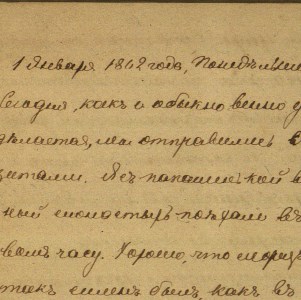 1 Января 1862 года, Понедѣльни
Сегодня, какъ и обыкновенно у
дѣлается, мы отправились с
зитами. Я съ папашинькой в
ный монастырь поѣхали въ
вомъ часу. Хорошо, что морозъ
такъ силенъ былъ, какъ въ